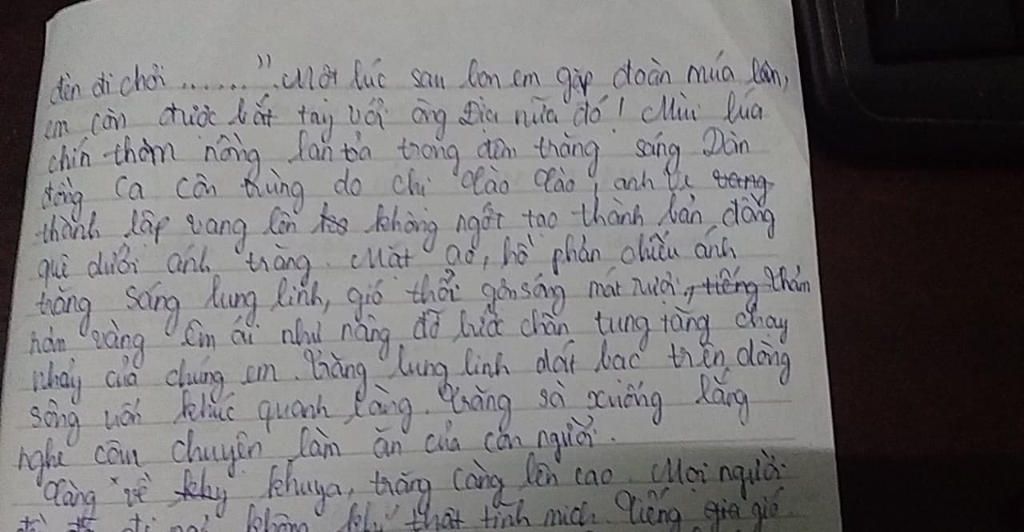 đèn đi chơi ......". Một lúc sau bọn em gặp đoàn múa lân,
em còn được bắt tay với ông Địa nữa đó! Mùi lúa
chín thơm nồng lan tỏa trong đêm trăng sáng Dàn
đồng ca côn trùng do chị Cào Cào, anh Ve
thành lập vang lên không ngớt tạo thành bản đồng
quê dưới ánh trăng. Mặt ao, hồ phản chiếu ánh
trăng sáng lung linh, gió thổi gợn sóng mát rượi, thảm
vàng êm ái như nâng đỡ bước chân tung tăng chạy
nhảy của chúng em. Trăng lung linh dát bạc trên dòng
sông uốn khúc quanh làng. Trăng sà xuống lắng
nghe câu chuyện làm ăn của con người.
Càng về khuya, trăng càng lên cao. Mọi người
thật tĩnh mịch. Tiếng gió